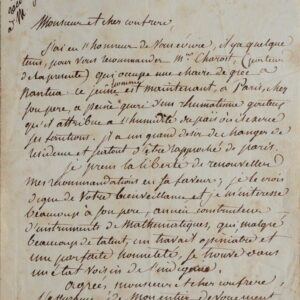 Monsieur et cher confrere
J'ai eu l'honneur de vous ecrire, il y a quelque
tems, pour vous recommander Mr. (porteur
de la presente) qui occupe une chaire de grec à
Nantua ce jeune homme est maintenant, à Paris, chez
son pere, à peine guéri d'un rhumatisme gouteux
qu'il attribue à l'humidité du païs où il exerce
ses fonctions. il a un grand desir de changer de
residence et surtout d'être rapproché de paris.
je prens la liberté de renouveller
mes recommandations en sa faveur; je le crois
digne de votre bienveillance et je m'interesse
beaucoup à son pere, ancien constructeur
d'instruments de Mathématiques, qui malgré
beaucoup de talent, un travail opiniatre et
une parfaite honnêteté, se trouve dans
un etat voisin de l'indigence.
agréez, monsieur et cher confrere,
de mon entier devouement